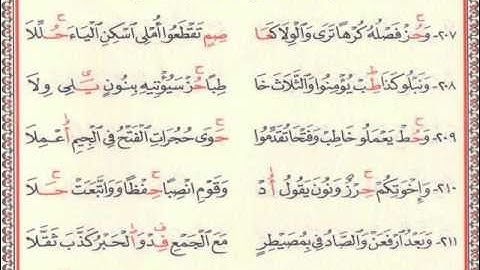 ٢٠٧- وَحُزْ فَصْلُهُ كُرْهًا تَرَى وَالْوِلَا كَمَا صِمٍ تَقْطَعُوا أُمْلِي اسْكِنِ الْيَاءَ حُلِّلَا
٢٠٨- وَنَبْلُو كَذَا طِبْ يُؤْمِنُوا وَالثَّلَاثَ خَا طِبًا حُزْ سَيُؤْتِيهِ بِنُونٍ يَلِي وِلَا
٢٠٩- وَحُطْ يَعْمَلُو خَاطِبْ وَفَتْحًا تَقَدَّمُوا حَوَى حُجُرَاتِ الْفَتْحُ فِي الْجِيمِ أُعْمِلَا
٢١٠- وَإِخْوَتِكُمْ حِرْزٌ وَنُونَ يَقُولُ أُدْ وَقَوْمِ انْصِبًا حِفْظًا وَوَاتَّبَعَتْ حَلَا
٢١١- وَبَعْدُ ارْفَعَنْ وَالصَّادُ فِي بِمُصَيْطِرٍ مَعَ الْجَمْعِ فِدْ وَالْحَبْرُ كَذَّبَ ثَقَّلَا